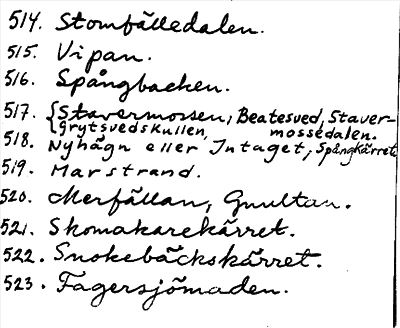 514. Stomfälledalen.
515. Vipan.
516. Spångbacken.
517. {Stavermossen, Beatesved, Staver-
Grytsvedskullen, mossedalen.
518. Nyhägn eller Intaget, Spångkärret
519. Marstrand.
520. Merfällan, Gnultan.
521. Skomakarekärret.
522. Snokebäckskärret.
523. Fagersjömaden.